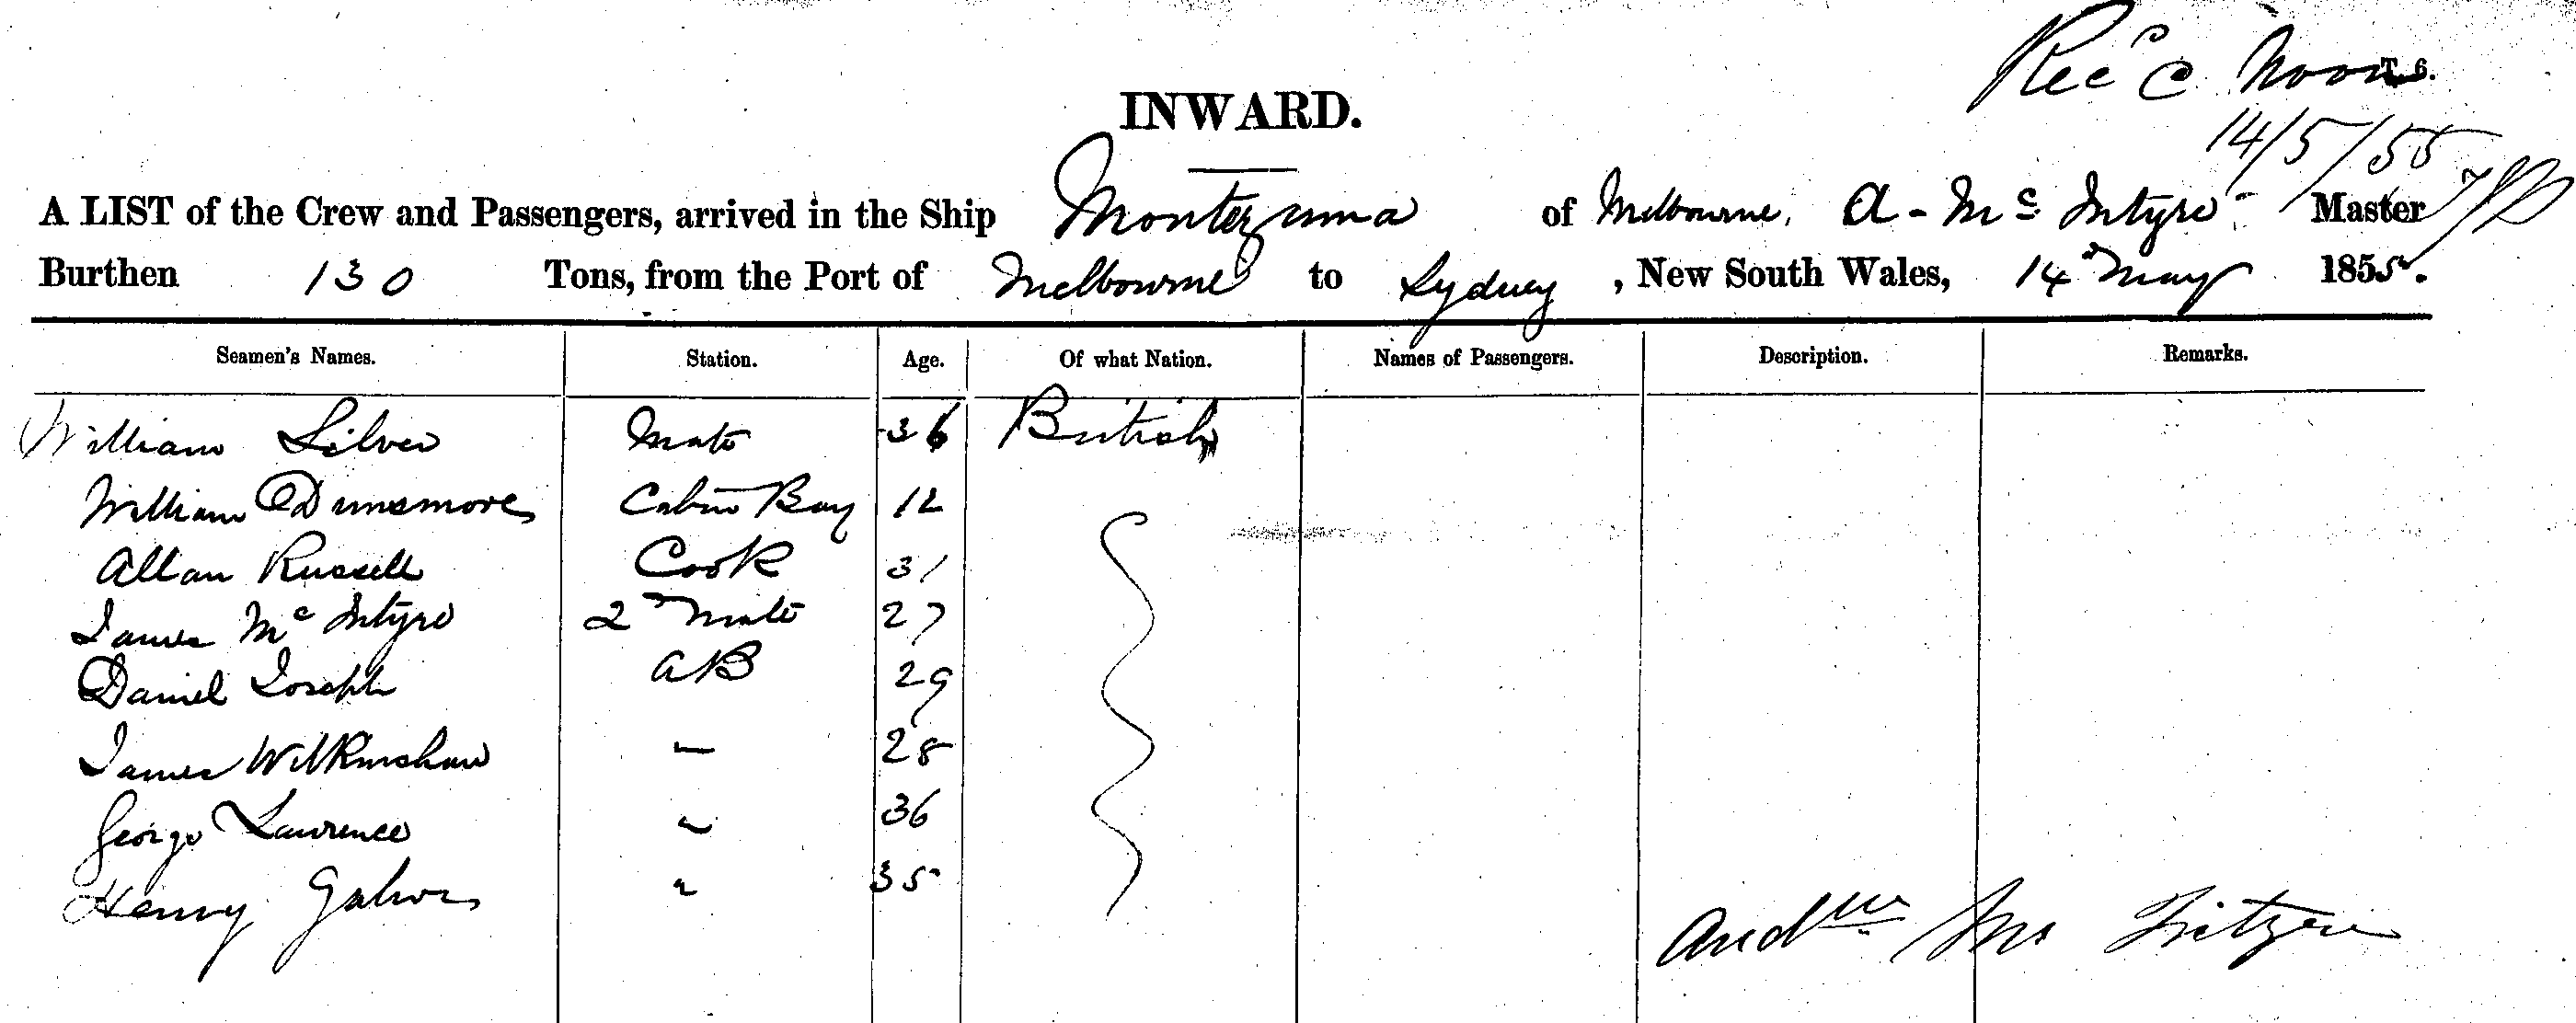 Rec'd Noon T. 6.
14/5/55
INWARD.
A LIST of the Crew and Passengers, arrived in the Ship Montezuma of Melbourne, A - Mc Intyre Master
Burthen 130 Tons, from the Port of Melbourne to Sydney, New South Wales, 14 May 1855.
Seamen's Names. Station. Age. Of what Nation. Names of Passengers. Description. Remarks.
William Silver Mate 36 British
William Dunsmore Cabin Boy 12
Allan Russell Cook 31
James Mc Intyre 2 Mate 27
Daniel Joseph AB 29
James Wilkinshaw - 28
George Lawrence " 36
Henry " 35
Andw Mc Intyre